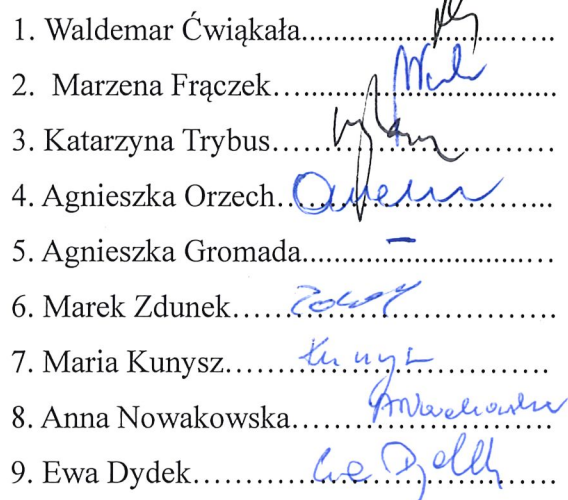 1. Waldemar Ćwiąkała..............................
2. Marzena Frączek..............................
3. Katarzyna Trybus..............................
4. Agnieszka Orzech..............................
5. Agnieszka Gromada..............................–
6. Marek Zdunek..............................
7. Maria Kunysz.............................. Kunysz
8. Anna Nowakowska.............................. ANowakowska
9. Ewa Dydek.............................. Ewa Dydek